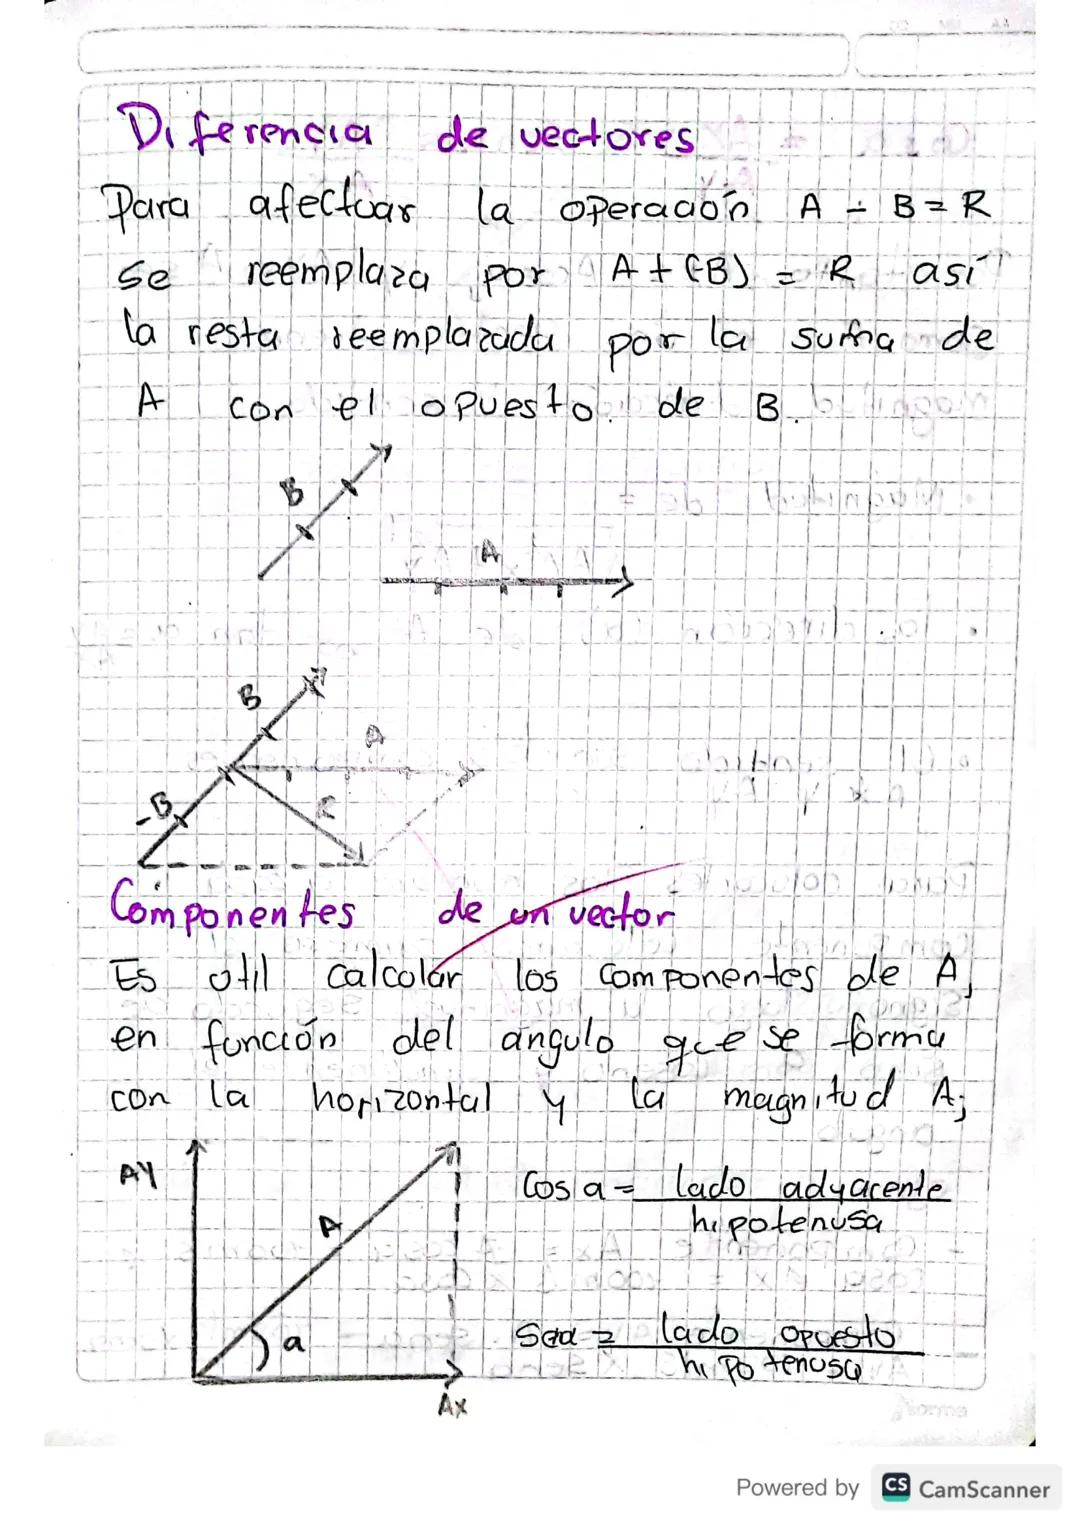 Diferencia de vectores
Para afectuar la operación A - B = R
se reemplaza por A + (-B) = R así
la resta reemplazada por la suma de
A con el opuesto de B.
B
A
B
A
-B
R
Componentes de un vector
Es útil calcular los componentes de A,
en función del ángulo que se forma
con la horizontal y la magnitud A;
AY
Cos a = lado adyacente
hipotenusa
A
a
lado opuesto
hipotenusa
Ax
Powered by CS CamScanner